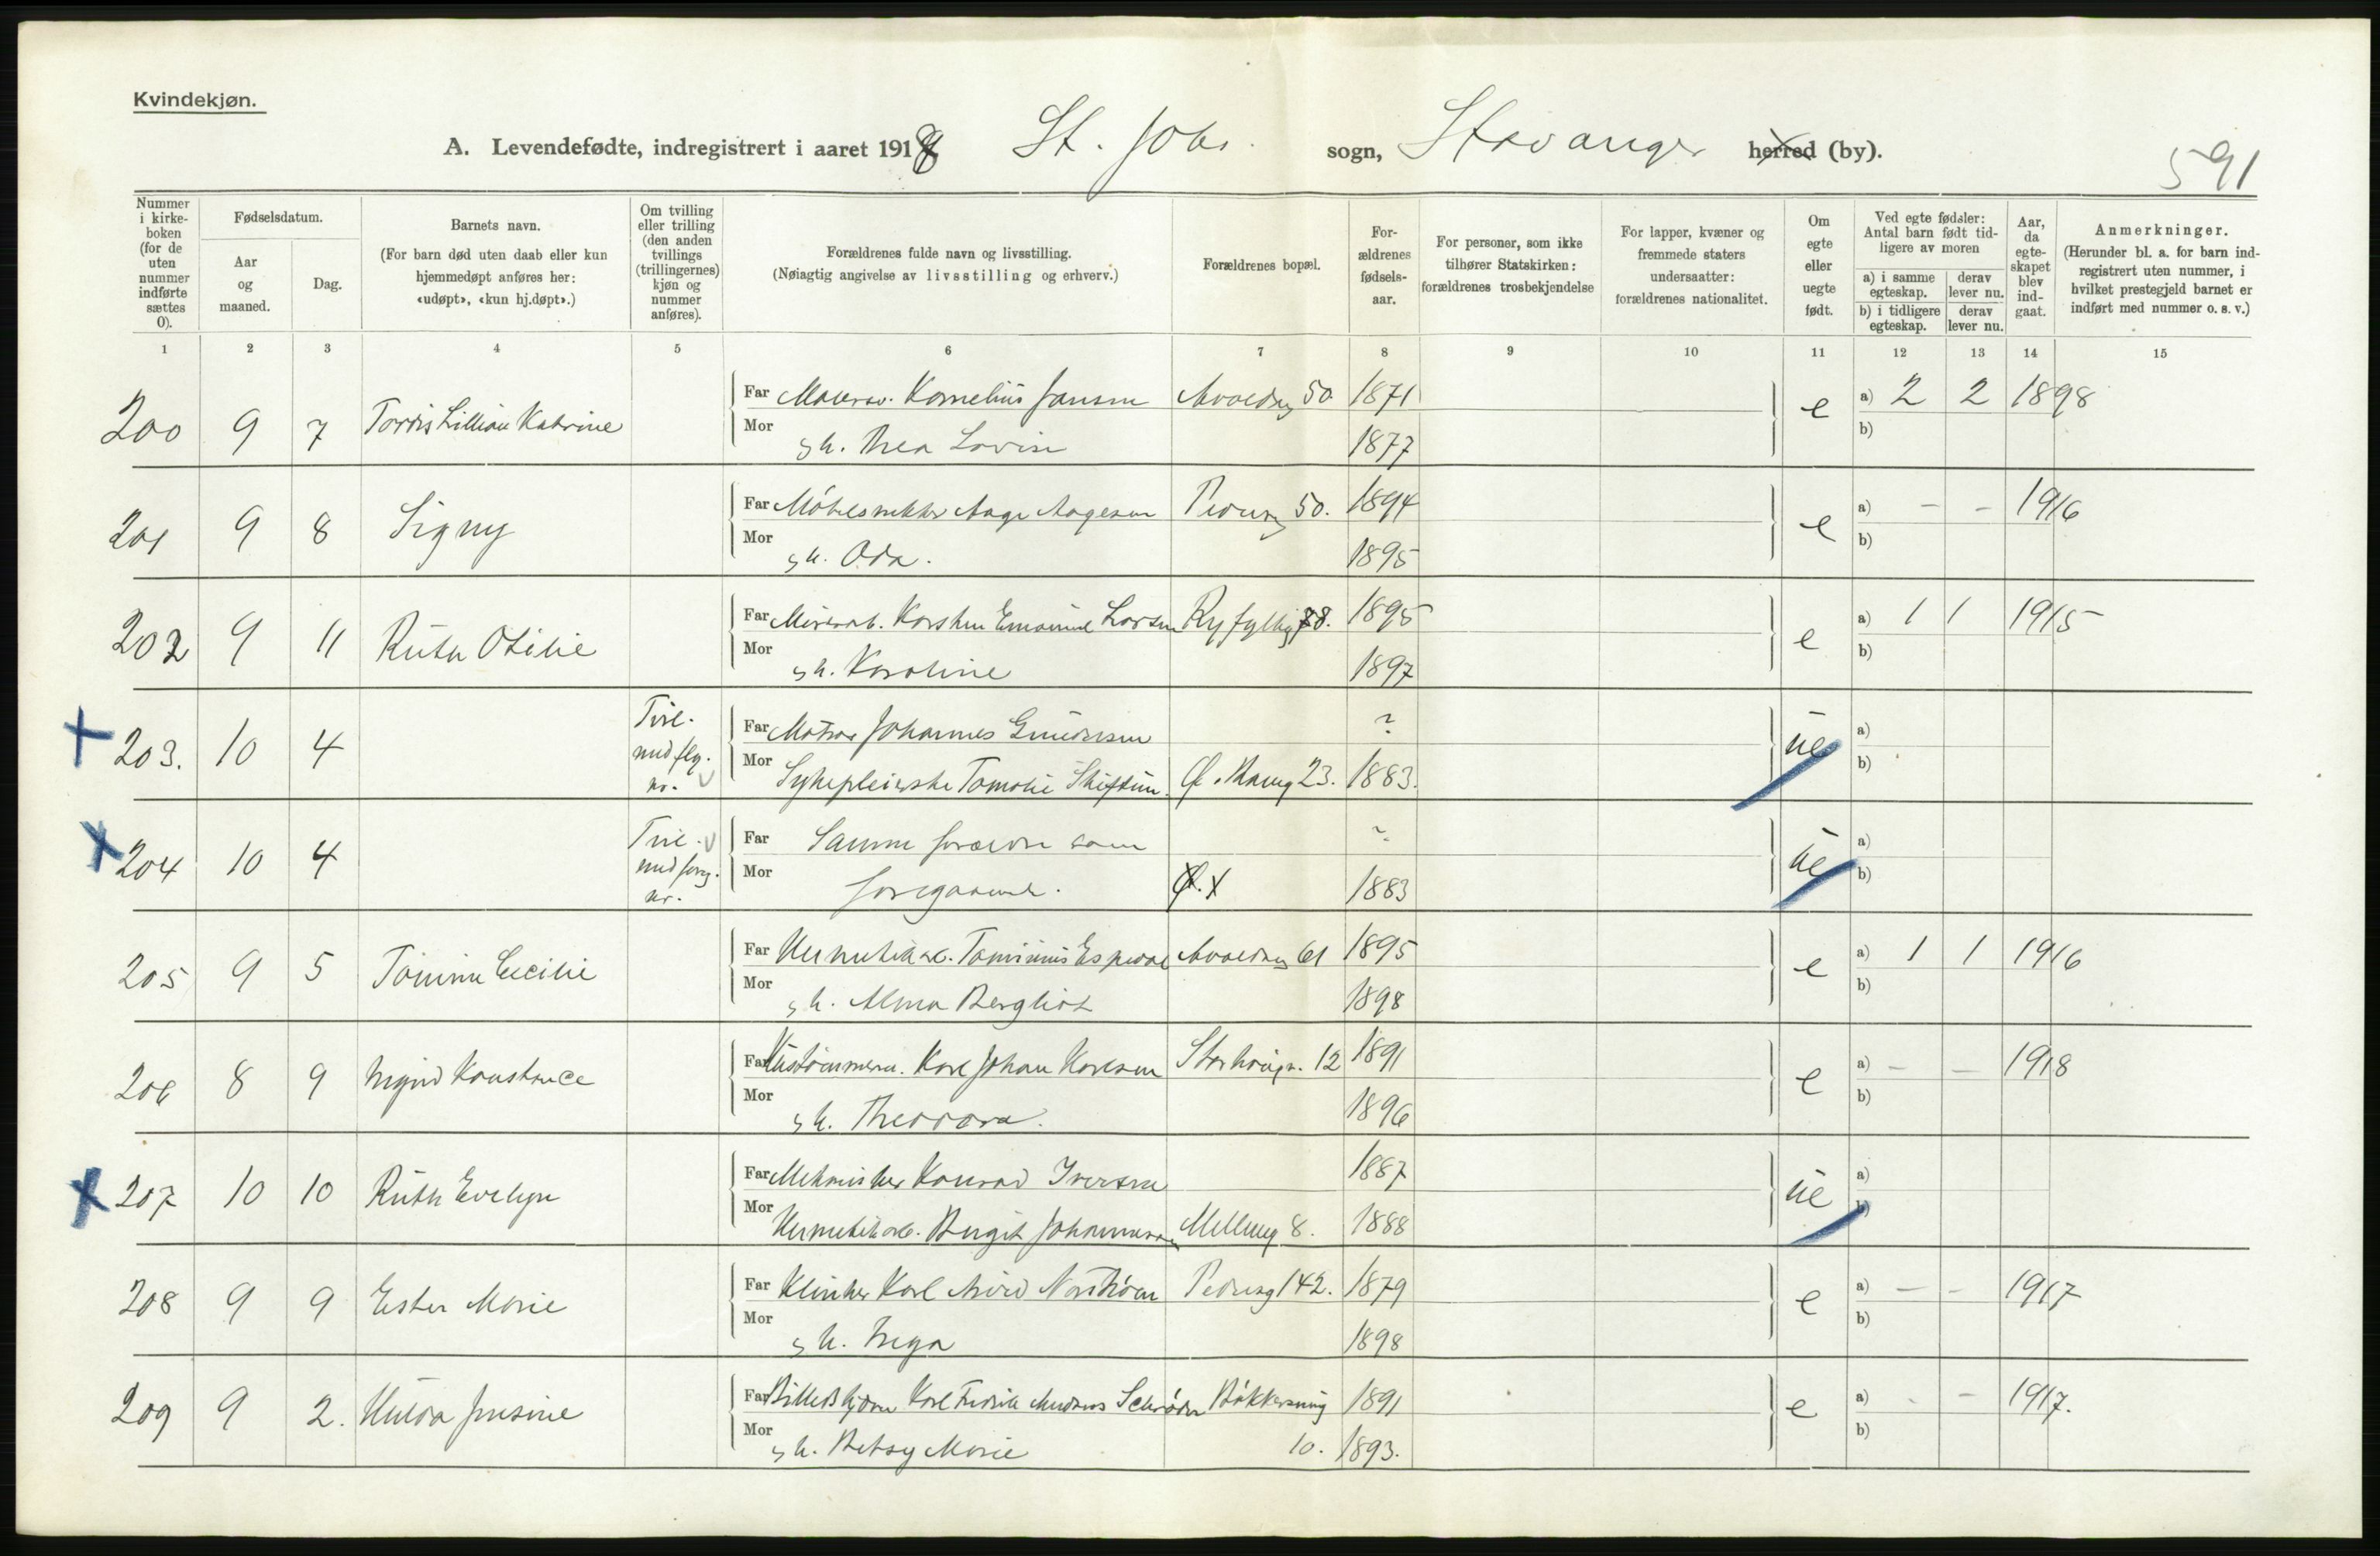 Kvindekjøn.
A. Levendefødte, indregistrert i aaret 1918 St. Johs. sogn, Stavanger herred (by).
591
Nummer i kirkeboken (for de uten nummer indførte sættes 0).
Fødselsdatum.
Aar og maaned.
Dag.
Barnets navn.
(For barn død uten daab eller kun hjemmedøpt anføres her: «udøpt», «kun hj.døpt».)
Om tvilling eller trilling (den anden tvillings (trillingernes) kjøn og nummer anføres).
Forældrenes fulde navn og livsstilling.
(Nøiagtig angivelse av livsstilling og erhverv.)
Forældrenes bopæl.
Forældrenes fødselsaar.
For personer, som ikke tilhører Statskirken: forældrenes trosbekjendelse
For lapper, kvæner og fremmede staters undersaatter: forældrenes nationalitet.
Om egte eller uegte født.
Ved egte fødsler: Antal barn født tidligere av moren
a) i samme egteskap.
derav lever nu.
b) i tidligere egteskap.
derav lever nu.
Aar, da egteskapet blev indgaat.
Anmerkninger.
(Herunder bl. a. for barn indregistrert uten nummer, i hvilket prestegjeld barnet er indført med nummer o. s. v.)
1 2 3 4 5 6 7 8 9 10 11 12 13 14 15
200 9 7 Tordis Lillian Katrine Far Kornelius Jansen 50 1871 e a) 2 2 1898
Mor h. Thea Lovise 1877 b)
201 9 8 Signy Far Møbelsnekker Aage Aagesen Pedersg 50. 1894 e a) - - 1916
Mor h. Oda. 1895 b)
202 9 11 Ruth Otilie Far Karsten Emanuel Larsen Ryfylkg 1895 e a) 1 1 1915
Mor h. Karoline 1897 b)
203. 10 4 Tvil. med flg. nr. Far Matros Johannes Gundersen ? ue a)
Mor Sykepleierske Tomolie Skiftun. 23. 1883. b)
204 10 4 Tvil. med forg. nr. Far Samme forældre som ? ue a)
Mor foregaaende. 1883 b)
205 9 5 Cecilie Far Espedal 61 1895 e a) 1 1 1916
Mor h. Alma Bergliot 1898 b)
206 8 9 Ingrid Konstance Far Hustømmerm. Karl Johan Karlsen Storhougv. 12 1891 e a) - - 1918
Mor h. Theodora. 1896 b)
207 10 10 Ruth Evelyn Far Mekaniker Konrad Iversen 1887 ue a)
Mor Hermetikarb. Birgit Johannesen 8. 1888 b)
208 9 9 Ester Marie Far Klinker Karl Arvid Pedersg 142. 1879 e a) - - 1917
Mor h. Inga 1898 b)
209 9 2. Hulda Jensine Far Karl Fredrik Andreas Schrøder 1891 e a) - - 1917.
Mor h. Betsy Marie 10. 1893. b)